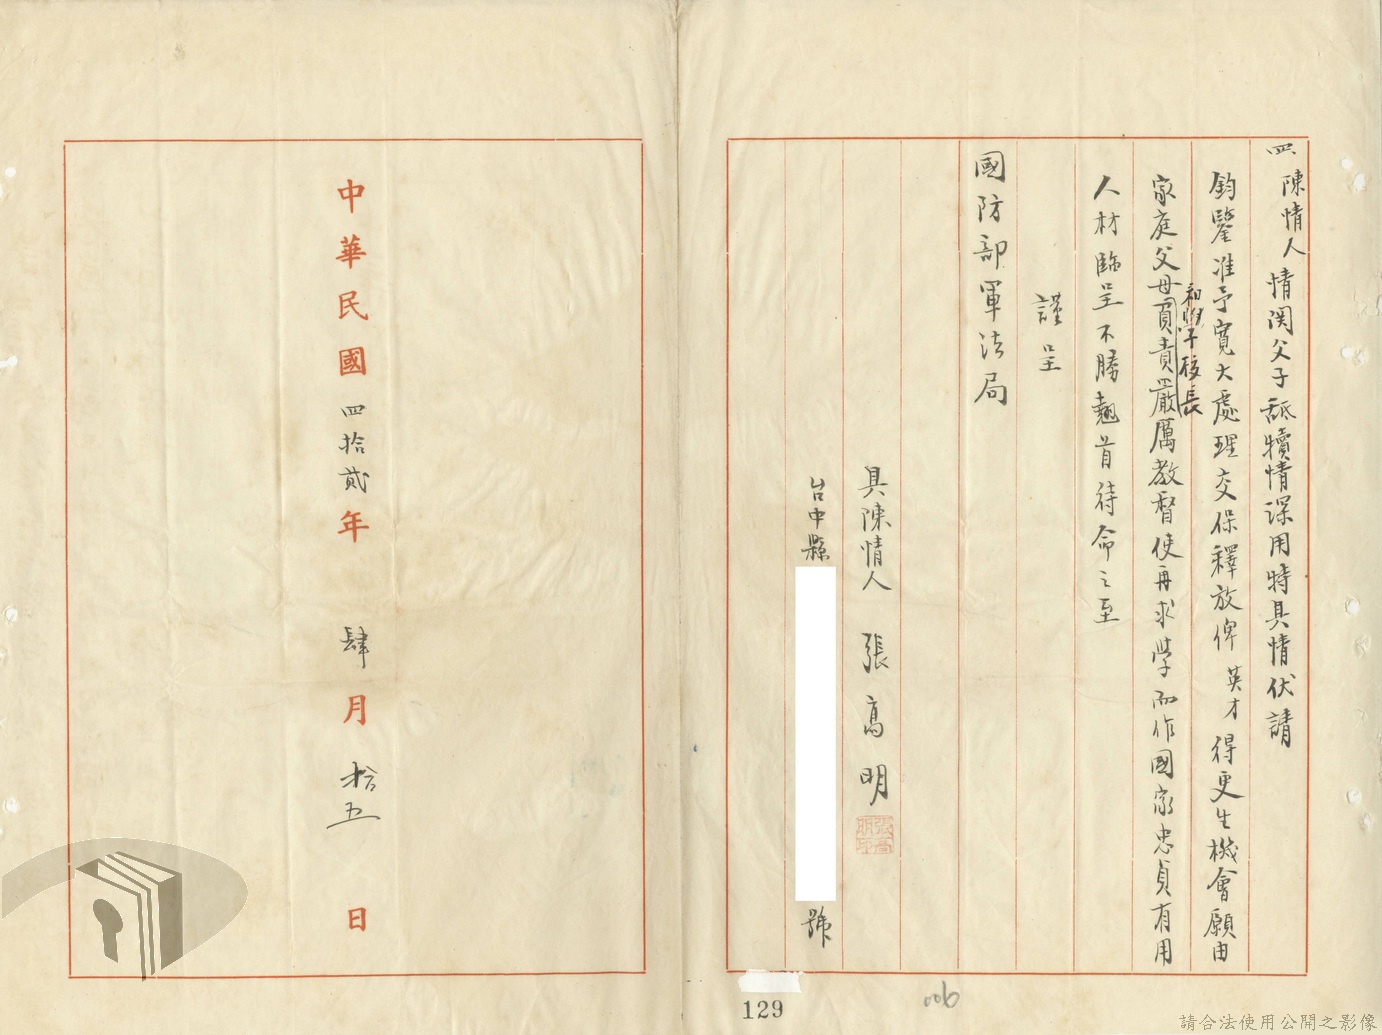 四、陳情人情関父子舐犢情深用特具情伏請
鈞鑒准予寬大處理交保釋放俾 英才得更生機會願由
家庭父母和學校長負責嚴厲教督使再求學而作國家忠貞有用
人材臨呈不勝翹首待命之至
謹呈
國防部軍法局
具陳情人 張高明
台中縣 號
中華民國四拾貳年肆月拾五日
129
006
請合法使用公開之影像